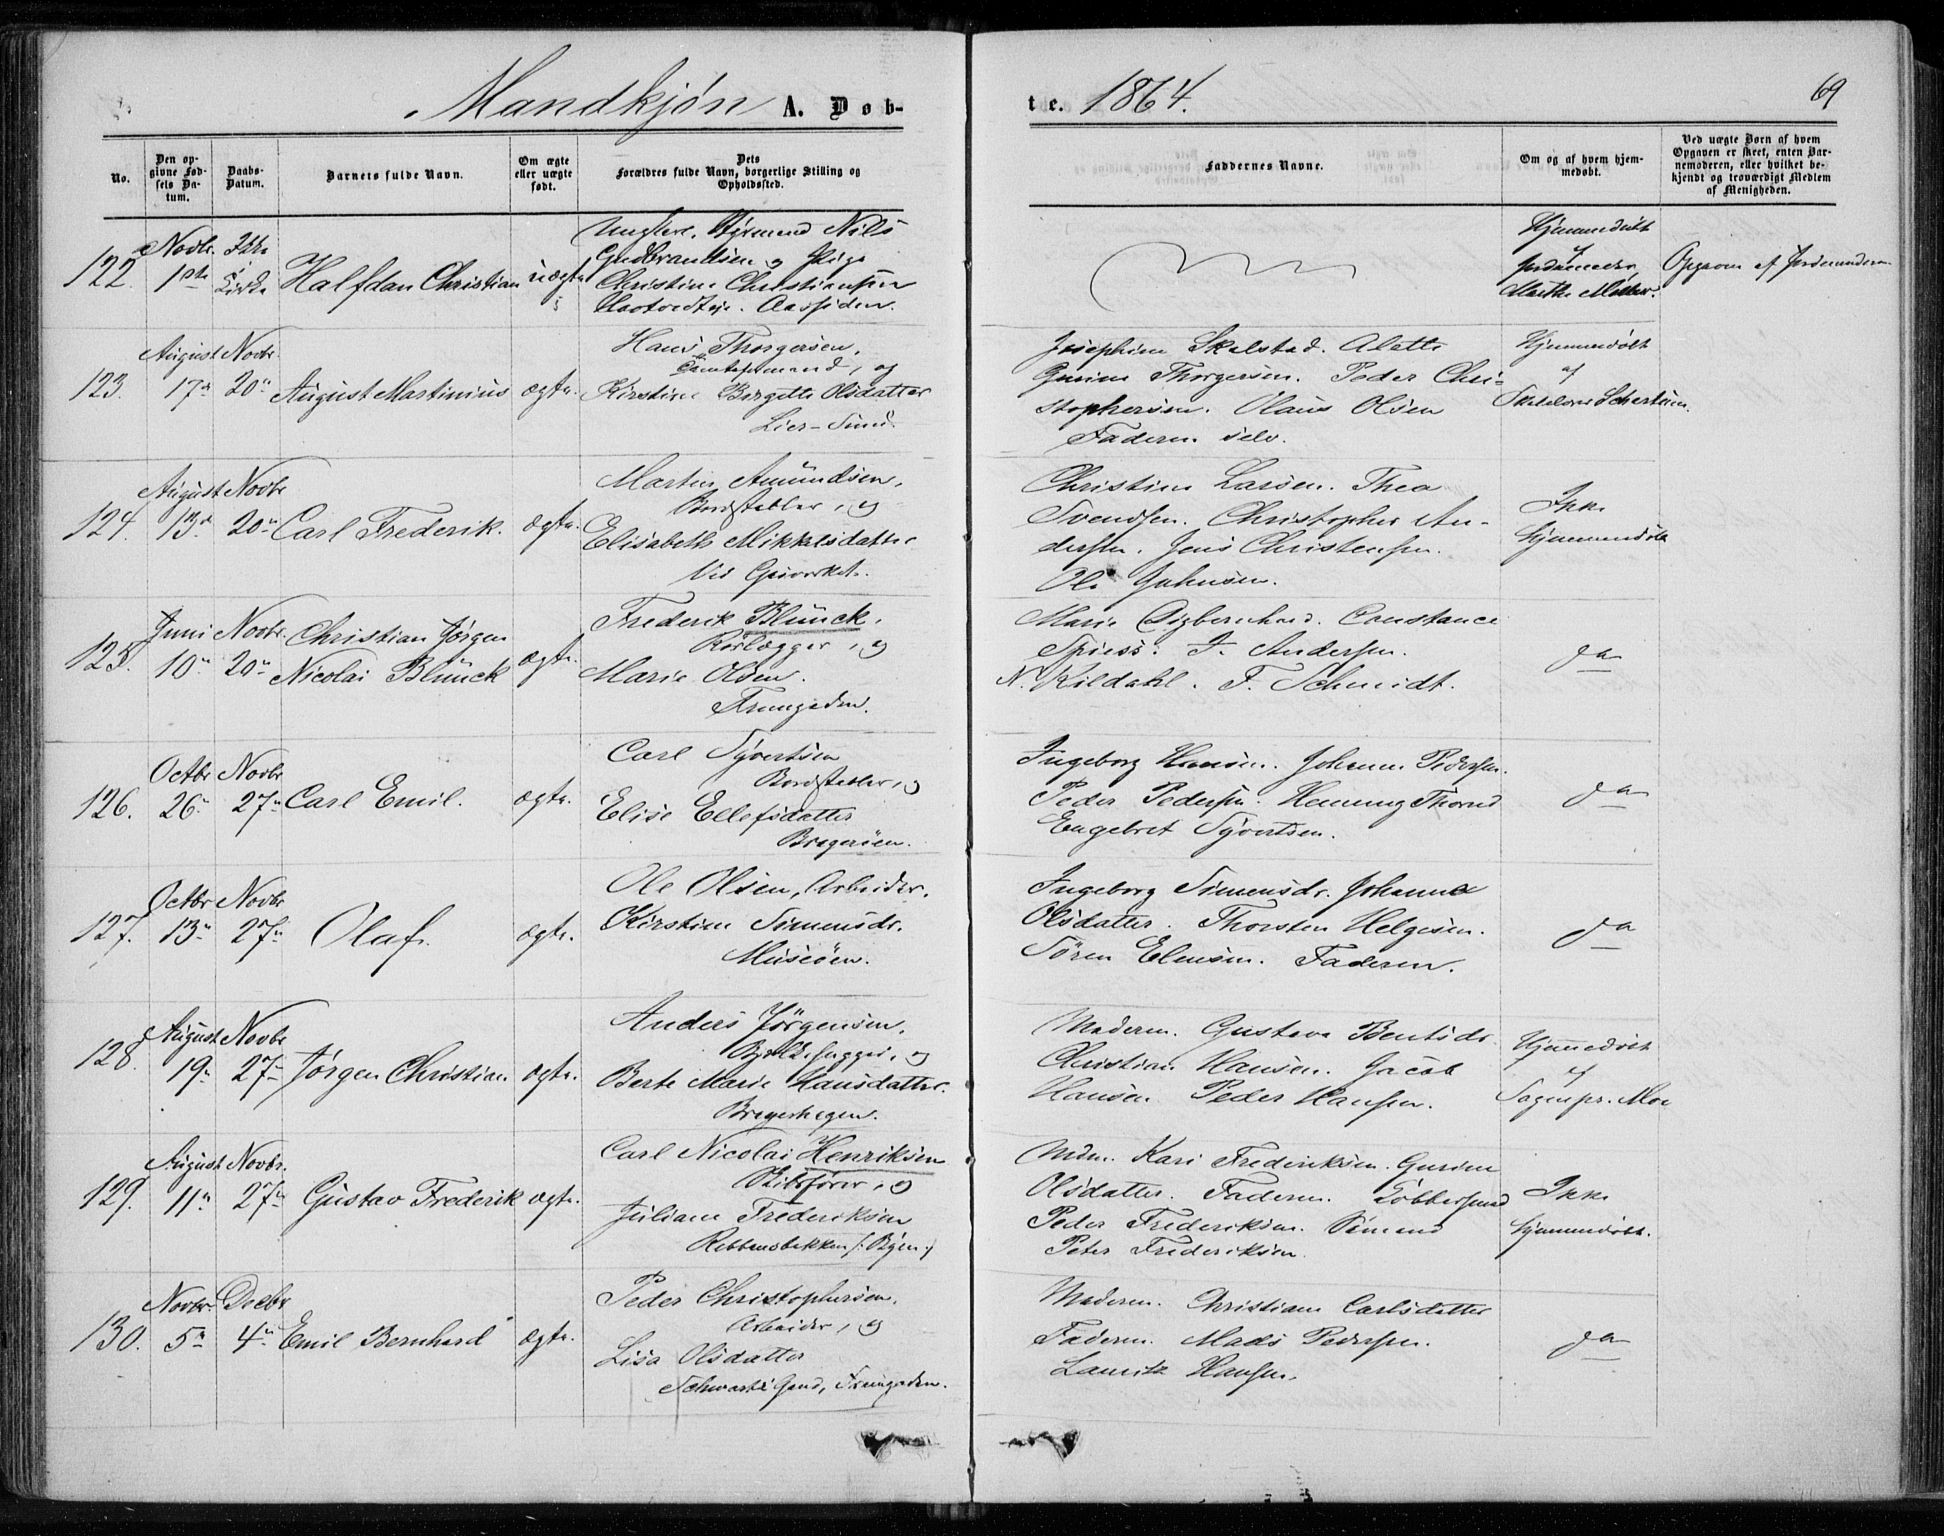 Mandkjøn A. Døb-
te. 1864. 69
No.
Den op-
givne Fød-
sels Da-
tum.
Daabs-
Datum.
Barnets fulde Navn.
Om ægte
eller uægte
født.
Dets
Forældres fulde Navn, borgerlige Stilling og
Opholdssted.
Faddernes Navne.
Om og af hvem hjem-
medøbt.
Ved uægte Børn af hvem
Opgaven er skeet, enten Bar-
nemoderen, eller hvilket be-
kjendt og troværdigt Medlem
af Menigheden.
122. Novbr. 1ste
Ikke
i
Kirke
Halfdan Christian
uægte
Ungkarl. Nils
Gudbrandsen og Pige
Christine Christiansen
Aassiden.
Hjemmedøbt
af
Jordmoder
Marthe Møller.
Opgaven af Jordemoderen
123. August 17de Novbr. 20de August Martinius ægte.
Hans Thorgersen,
og
Kirstine Birgitte Olsdatter
Lier-
Josephine Skalstad. Alette
Gurine Thorgersen. Peder Chri-
stophersen. Olaus Olsen
Faderen selv.
Hjemmedøbt
af
124. August 13de Novbr 20de Carl Frederik. ægte.
Martin Amundsen,
Bordstabler, og
Elisabeth Mikkelsdatter
Ved
Christine Larsen. Thea
Svendsen. Christopher An-
dersen. Jens Christensen.
Ole Johnsen.
Ikke
hjemmedøbt
125. Juni 10de Novbr. 20de Christian Jørgen
Nicolai Blunck ægte.
Frederik Blunck,
Rørlægger, og
Marie Olsen.
Strømgaden.
Marie Constance
Spiess. J. Andersen.
N. Kildahl. F. Schmidt.
da
126. Octbr 26de Novbr 27de Carl Emil. ægte.
Carl Syvertsen
Bordstabler, og
Elise Ellefsdatter
Bragerøen.
Ingeborg Hansen. Johanne Pedersen.
Peder Pedersen. Henning
Engebret Syvertsen.
da
127. Octbr 13de Novbr 27de Olaf. ægte.
Ole Olsen, Arbeider.
Kirstine Simensdr.
Museøen.
Ingeborg Simensdr. Johanne
Olsdatter. Thorsten Helgesen.
Søren Elensen. Faderen.
da
128. August 19de Novbr 27de Jørgen Christian ægte.
Anders Jørgensen,
og
Berte Marie Hansdatter.
Bragerhagen.
Moderen. Gustava Bentsdr.
Christian Hansen. Jacob
Hansen Peder Hansen.
Hjemmedøbt
af
Sogenpr. Moe
129. August 11te Novbr. 27de Gustav Frederik ægte.
Carl Nicolai Henriksen
og
Juliane Frederiksen
Ribbensbakken /: Byen:/
Mdm. Kari Frederiksen. Gurine
Olsdatter. Faderen.
Peder Frederiksen. Sømand
Peter Frederiksen.
Ikke
hjemmedøbt.
130. Novbr. 5te Decbr 4de Emil Bernhard ægte.
Peder Christophersen.
Arbeider, og
Lisa Olsdatter
Schwartz Gaard, Strømgaden.
Moderen. Christiane Carlsdatter
Faderen. Mads Pedersen.
Lauritz Hansen.
da